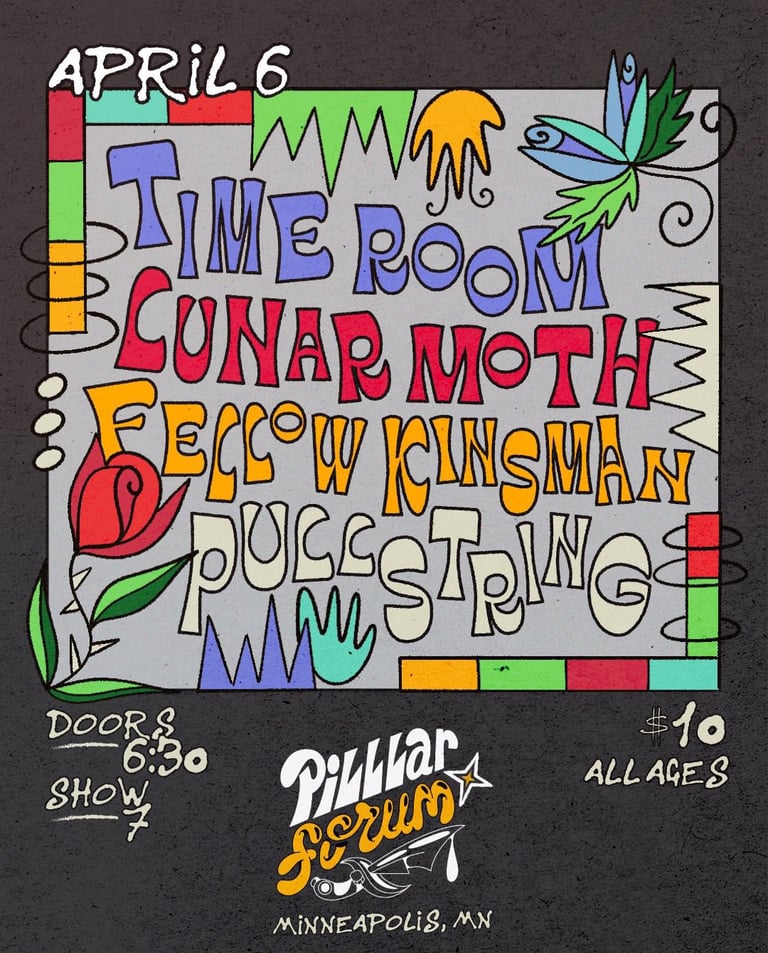 APRiL 6
TIME ROOM
LUNAR MOTH
FELLOW KINSMAN
PULLSTRING
DOORS
6:30
SHOW
7
$10
ALL AGES
Pilllar
forum
MiNNEAPOLiS, MN